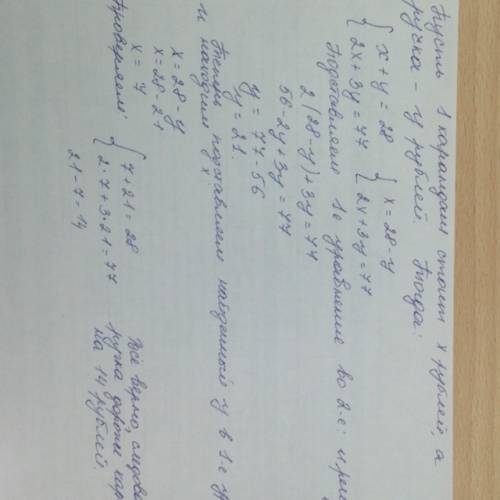 Пусть 1 карандаш стоит x рублей, а
ручка - y рублей. Тогда:
{ x + y = 28 { x = 28 - y
2x + 3y = 77 2x + 3y = 77
Подставляем 1е уравнение во 2-е: и
2(28 - y) + 3y = 77
56 - 2y + 3y = 77
y = 77 - 56
y = 21.
Теперь подставляем найденный y в 1-е
и находим x:
x = 28 - y
x = 28 - 21
x = 7
Проверяем: { 7 + 21 = 28
2·7 + 3·21 = 77
21 - 7 = 14
Всё верно, следов
ручка дороже кар
на 14 рублей.